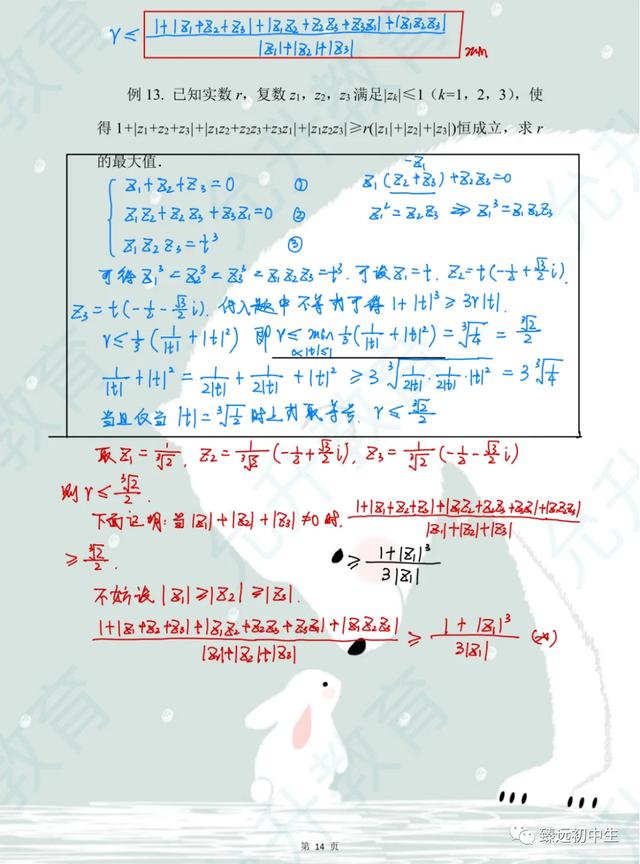 r ≤ (1+|z₁+z₂+z₃|+|z₁z₂+z₂z₃+z₃z₁|+|z₁z₂z₃|)/(|z₁|+|z₂|+|z₃|) min
例 13. 已知实数 r，复数 z₁，z₂，z₃满足|zₖ|≤1（k=1，2，3），使
得 1+|z₁+z₂+z₃|+|z₁z₂+z₂z₃+z₃z₁|+|z₁z₂z₃|≥r(|z₁|+|z₂|+|z₃|)恒成立，求 r
的最大值．
-z₁
z₁+z₂+z₃=0 ① z₁(z₂+z₃)+z₂z₃=0
z₁z₂+z₂z₃+z₃z₁=0 ② z₁²=z₂z₃ ⇒ z₁³=z₁z₂z₃
z₁z₂z₃=t³ ③
可得 z₁³=z₂³=z₃³=z₁z₂z₃=t³. 可设z₁=t, z₂=t(-1/2+√3/2 i),
z₃=t(-1/2-√3/2 i). 代入题中不等式可得 1+|t|³≥3r|t|.
r≤1/3(1/|t|+|t|²) 即 r≤ min 0<|t|≤1 1/3(1/|t|+|t|²)=∛(1/4)=∛2/2
1/|t|+|t|²=1/(2|t|)+1/(2|t|)+|t|²≥3∛(1/(2|t|)·1/(2|t|)·|t|²)=3∛(1/4)
当且仅当 |t|=∛(1/2) 时上式取等号. r≤∛2/2
取 z₁=1/∛2, z₂=1/∛2(-1/2+√3/2 i), z₃=1/∛2(-1/2-√3/2 i)
则 r≤∛2/2.
下面证明: 当|z₁|+|z₂|+|z₃|≠0时, (1+|z₁+z₂+z₃|+|z₁z₂+z₂z₃+z₃z₁|+|z₁z₂z₃|)/(|z₁|+|z₂|+|z₃|)
≥∛2/2. ≥(1+|z₁|³)/(3|z₁|)
不妨设 |z₁|≥|z₂|≥|z₃|.
(1+|z₁+z₂+z₃|+|z₁z₂+z₂z₃+z₃z₁|+|z₁z₂z₃|)/(|z₁|+|z₂|+|z₃|) ≥ (1+|z₁|³)/(3|z₁|) (*)
第 14 页
臻远初中生
允升教育